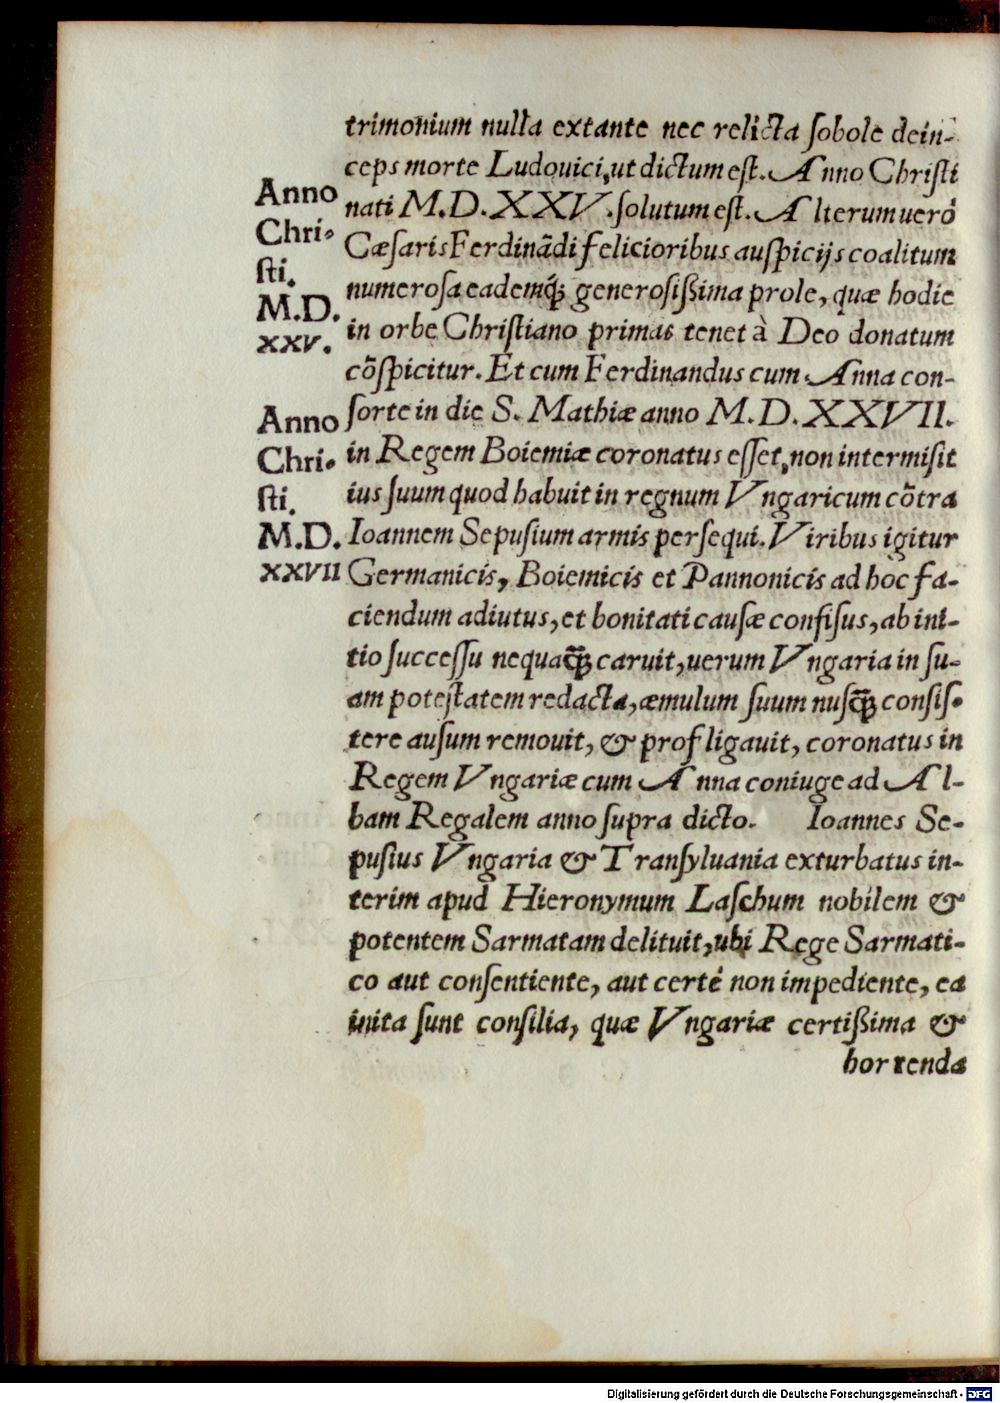 trimonium nulla extante nec relicta ſobole dein-
ceps morte Ludouici, ut dictum eſt. Anno Chriſti
nati M.D.XXV. ſolutum eſt. Alterum uerò
Cæſaris Ferdinãdi felicioribus auſpicijs coalitum
numeroſa eademq́; generoſißima prole, quæ hodie
in orbe Chriſtiano primas tenet à Deo donatum
cõſpicitur. Et cum Ferdinandus cum Anna con-
ſorte in die S. Mathiæ anno M.D.XXVII.
in Regem Boiemiæ coronatus eſſet, non intermiſit
ius ſuum quod habuit in regnum Vngaricum cõtra
Ioannem Sepuſium armis perſequi. Viribus igitur
Germanicis, Boiemicis et Pannonicis ad hoc fa-
ciendum adiutus, et bonitati cauſæ confiſus, ab ini-
tio ſucceſſu nequaq̃; caruit, uerum Vngaria in ſu-
am poteſtatem redacta, æmulum ſuum nuſq̃; conſiſ-
tere auſum remouit, & profligauit, coronatus in
Regem Vngariæ cum Anna coniuge ad Al-
bam Regalem anno ſupra dicto. Ioannes Se-
puſius Vngaria & Tranſyluania exturbatus in-
terim apud Hieronymum Laſchum nobilem &
potentem Sarmatam delituit, ubi Rege Sarmati-
co aut conſentiente, aut certè non impediente, ea
inita ſunt conſilia, quæ Vngariæ certißima &
horrenda
Anno
Chri-
ſti.
M.D.
XXV.
Anno
Chri-
ſti.
M.D.
XXVII
Digitalisierung gefördert durch die Deutsche Forschungsgemeinschaft - DFG